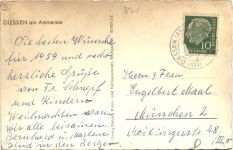 DIESSEN am Ammersee
Die besten Wünsche
für 1959 und recht
herzliche Grüße
von Fr. Schnepf
und Kindern
Weihnachten waren
wir alle beisammen.
Bernhard u.
sind in den Bergen
Herrn / Frau
Engelbert Maul
München 2
48
DIESSEN
10